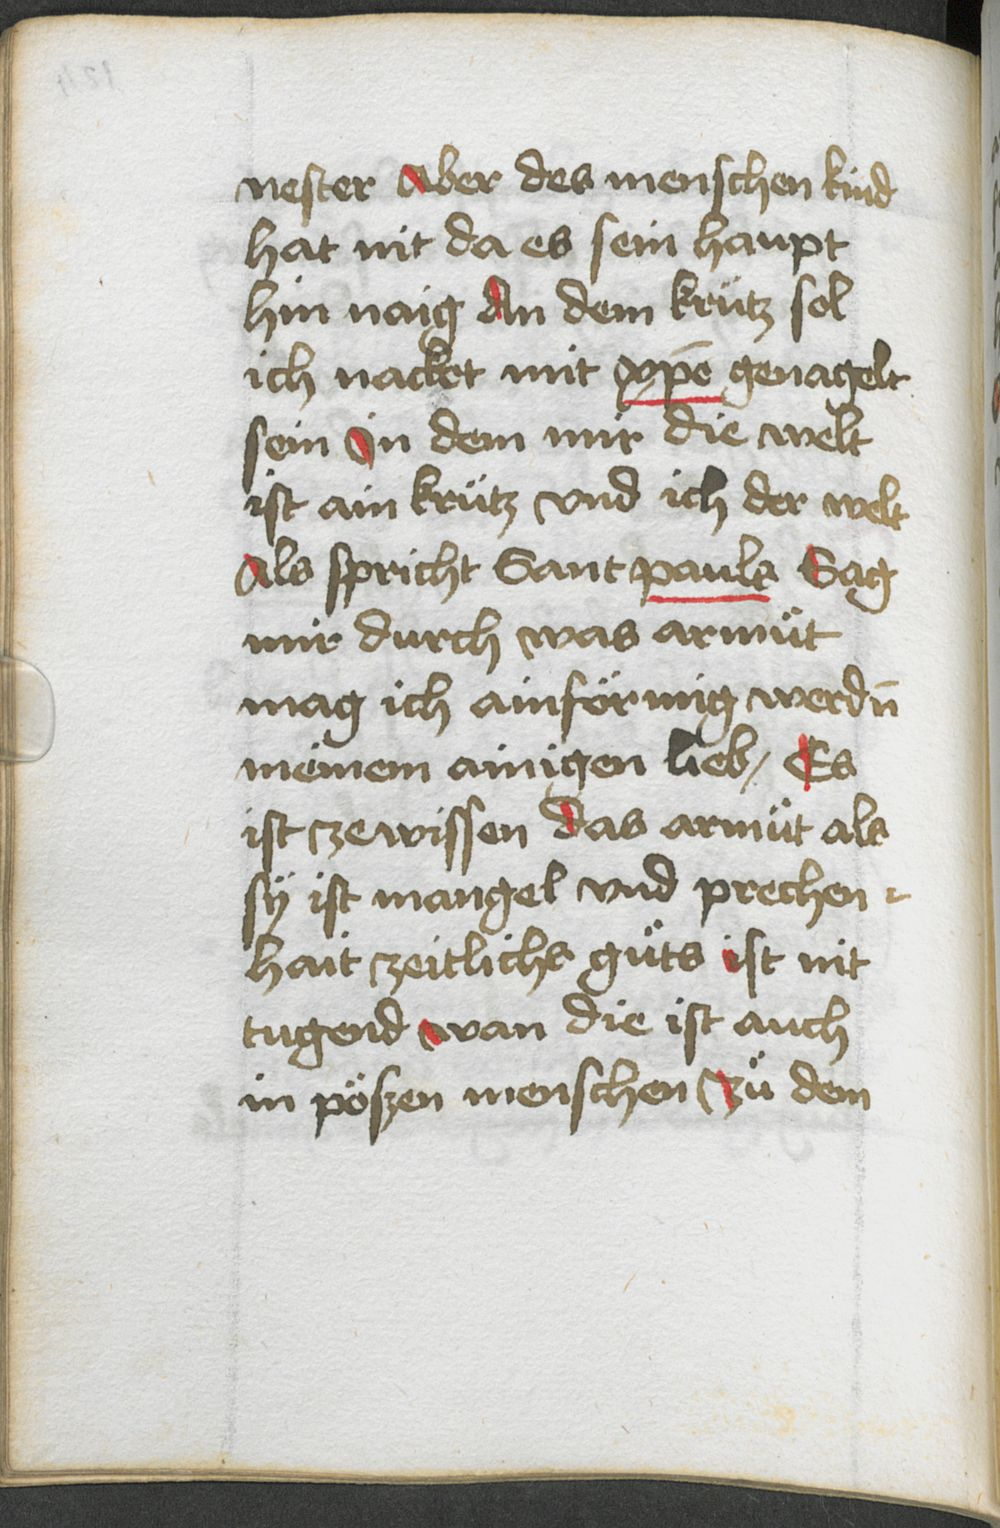 nester Aber des menschen kind
hat nit da es sein haupt
hin naig An dem krütz sol
ich nacket mit xp̄o genagelt
sein In dem mir die welt
ist ain krütz vnd ich der welt
Als spricht Sant pauls Sag
mir durch was armůt
mag ich ainförmig werdn̄
meinem ainigen lieb / Es
ist ze wissen das armůt als
sÿ ist mangel vnd prechen -
hait zeitlichs gůts ist nit
tugend wan die ist auch
in pöszen menschen Zů dem